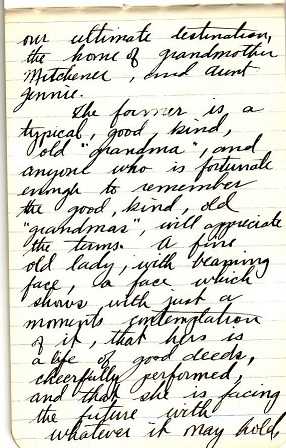 our ultimate destination,
the home of grandmother
Mitchener, and aunt
Jennie.
The former is a
typical, good, kind,
old "grandma", and
anyone who is fortunate
enough to remember
the good, kind, old
"grandmas", will appreciate
the term. A fine
old lady, with beaming
face, a face which
shows with just a
moments contemplation
of it, that hers is
a life of good deeds,
cheerfully performed,
and that she is facing
the future with
whatever it may hold,